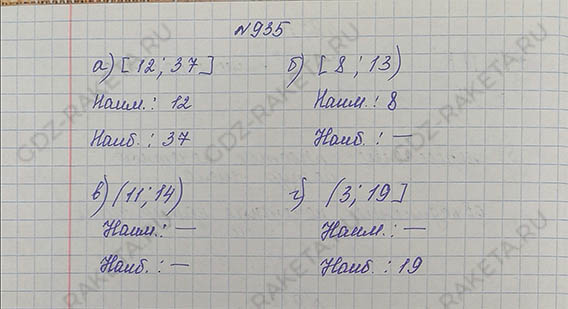 №935
а) [12; 37] б) [8; 13)
Наим.: 12 Наим.: 8
Наиб.: 37 Наиб.: —
в) (11; 14) г) (3; 19]
Наим.: — Наим.: —
Наиб.: — Наиб.: 19
GDZ-RAKETA.RU